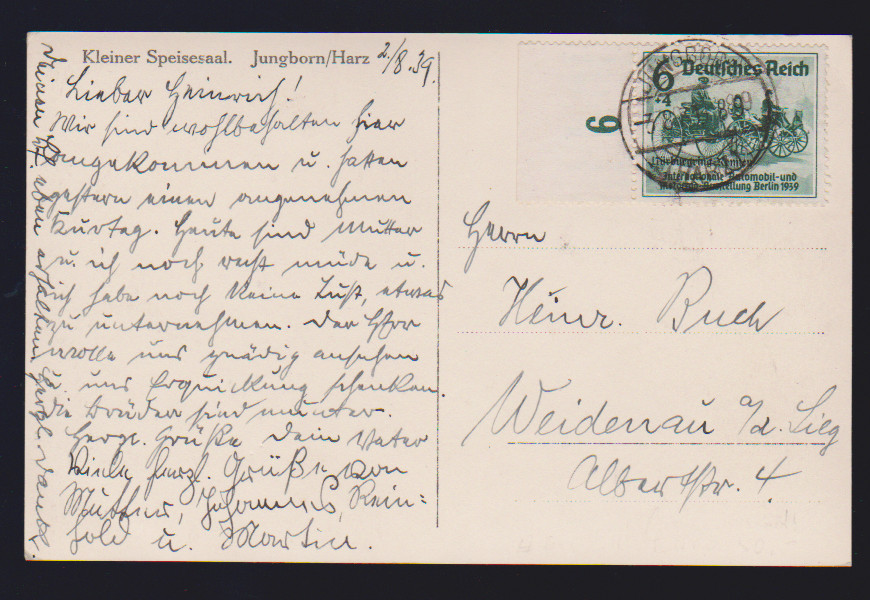 Kleiner Speisesaal. Jungborn/Harz 2./8.39.
Lieber Heinrich!
Wir sind wohlbehalten hier
angekommen u. hatten
gestern einen angenehmen
Kurtag. Heute sind Mutter
u. ich noch recht müde u.
ich habe noch keine Lust, etwas
zu unternehmen. Der Herr
wolle uns gnädig ansehen
u. uns Erquickung schenken.
Die Brüder sind munter.
Herzl. Grüße Dein Vater
Viele herzl. Grüße von
Mutter, Johannes, Rein=
hold u. Martin.
Deinen Br. eben erhalten, herzl. Dank.
6
6+4 Deutsches Reich
Nürburgring-Rennen
Internationale Automobil-und
Motorrad-Ausstellung Berlin 1939
JUNGBORN
Herrn
Heinr. Buch
Weidenau a/d. Sieg
Albertstr. 4